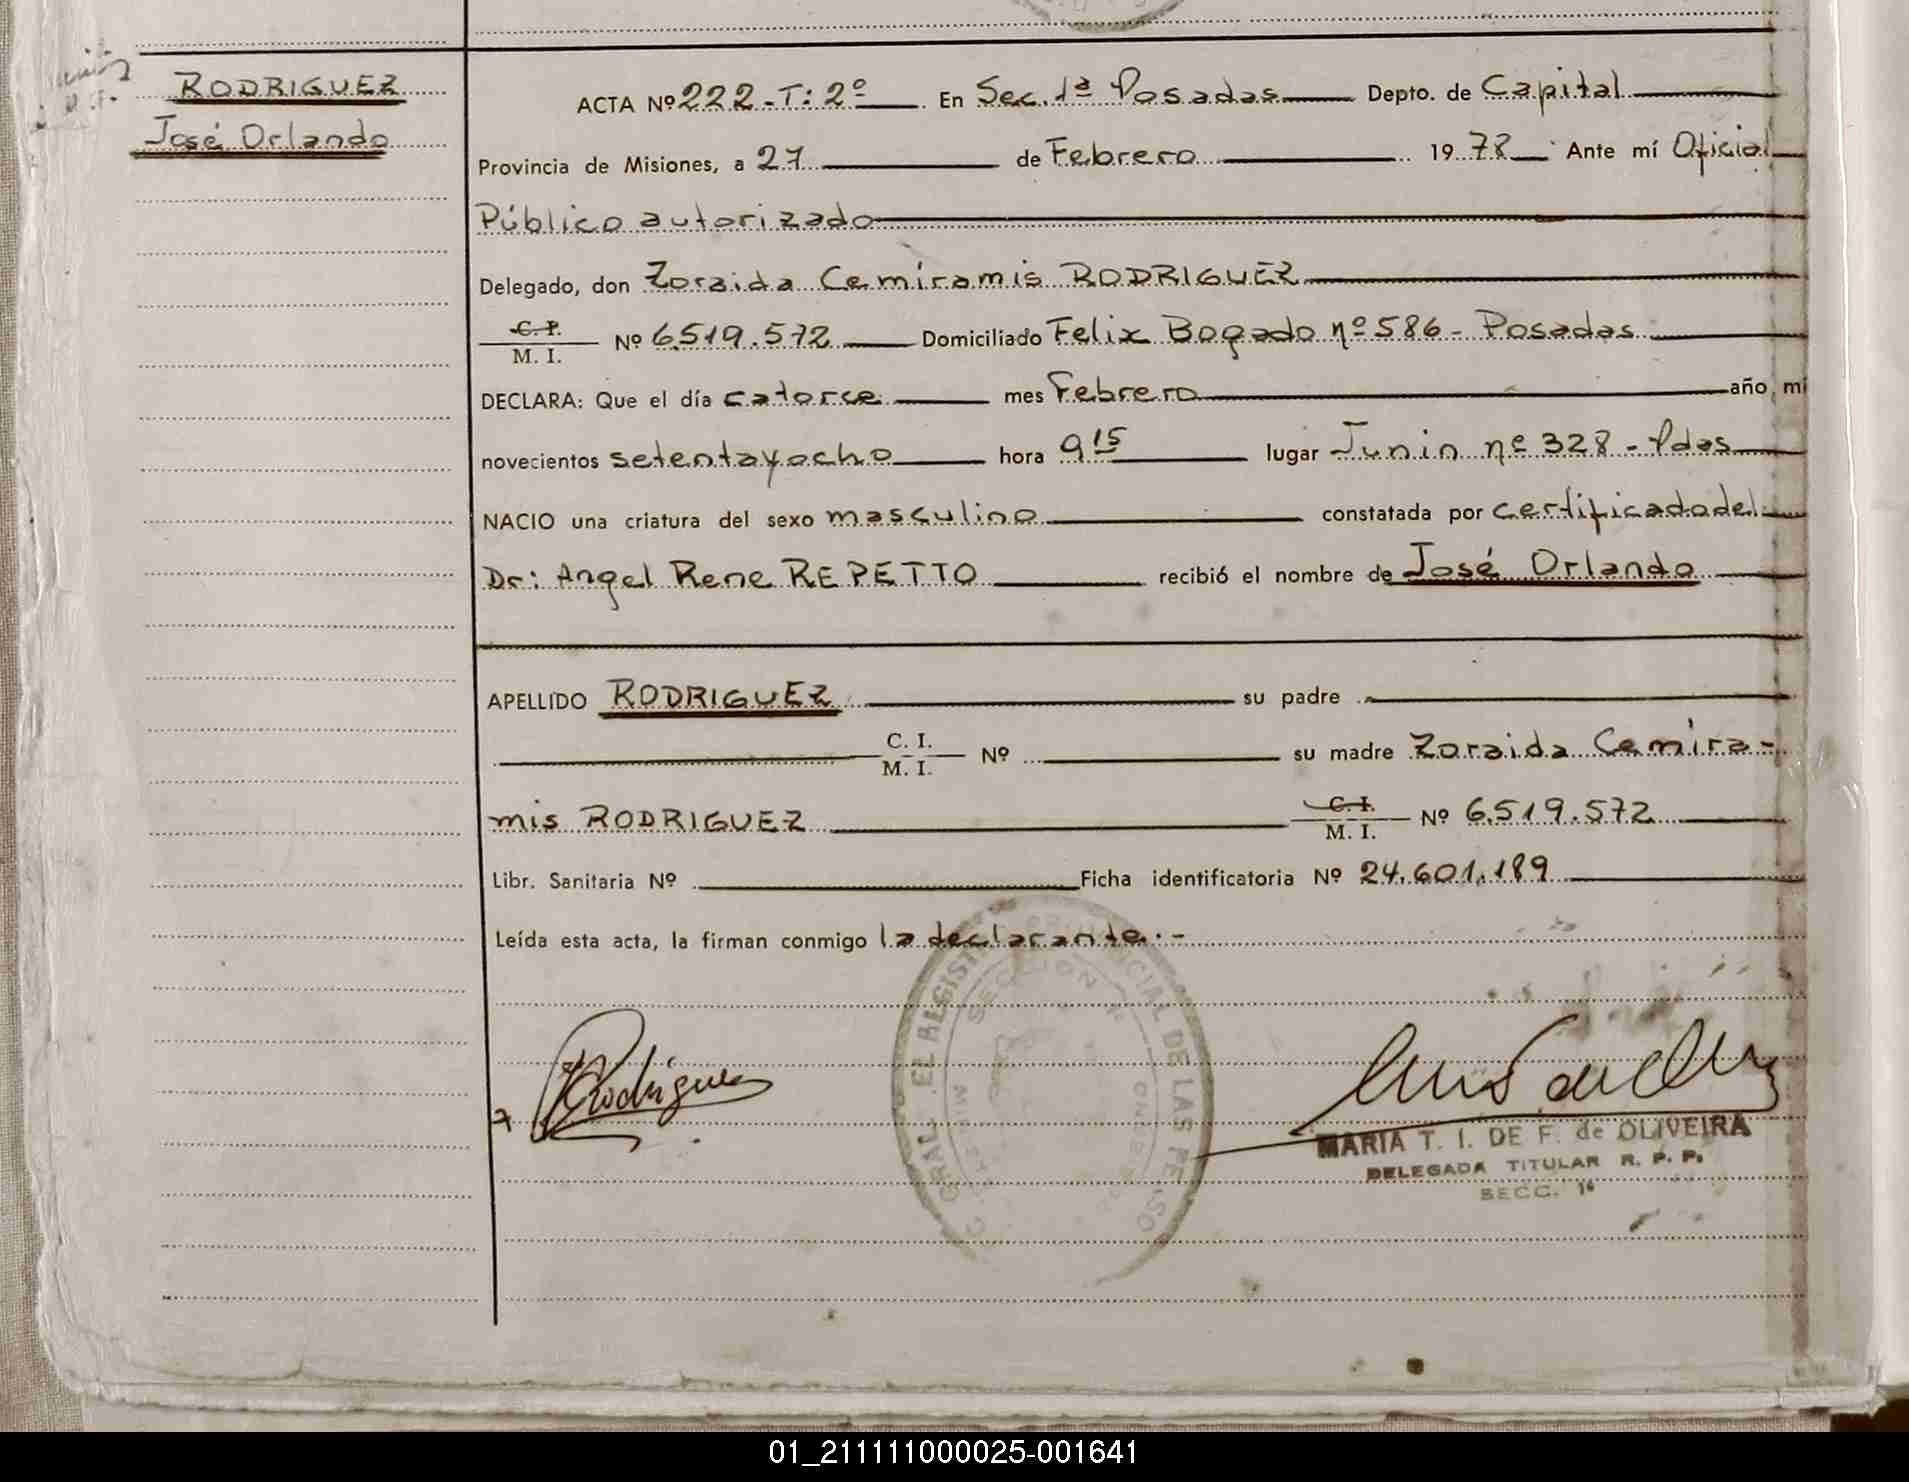 RODRIGUEZ
José Orlando
ACTA Nº 222 - T: 2º En Sec. 1ª Posadas Depto. de Capital
Provincia de Misiones, a 27 de Febrero 1978 Ante mí Oficial
Público autorizado
Delegado, don Zoraida Cemiramis RODRIGUEZ
C. P.
M. I. Nº 6.519.572 Domiciliado Felix Bogado nº 586 - Posadas
DECLARA: Que el día catorce mes Febrero año mi
novecientos setentayocho hora 9 15 lugar Junin nº 328 - Pdas
NACIO una criatura del sexo masculino constatada por certificadodel
Dr: Angel Rene REPETTO recibió el nombre de José Orlando
APELLIDO RODRIGUEZ su padre
C. I.
M. I. Nº su madre Zoraida Cemira-
mis RODRIGUEZ C. I.
M. I. Nº 6.519.572
Libr. Sanitaria Nº Ficha identificatoria Nº 24.601.189
Leída esta acta, la firman conmigo la declarante.-
GRAL. EL REGISTR PROVINCIAL DE LAS PERSO
SECCION 1ª
Rodriguez
MARIA T. I. DE F. de OLIVEIRA
DELEGADA TITULAR R. P. P.
SECC. 1ª
01_211111000025-001641